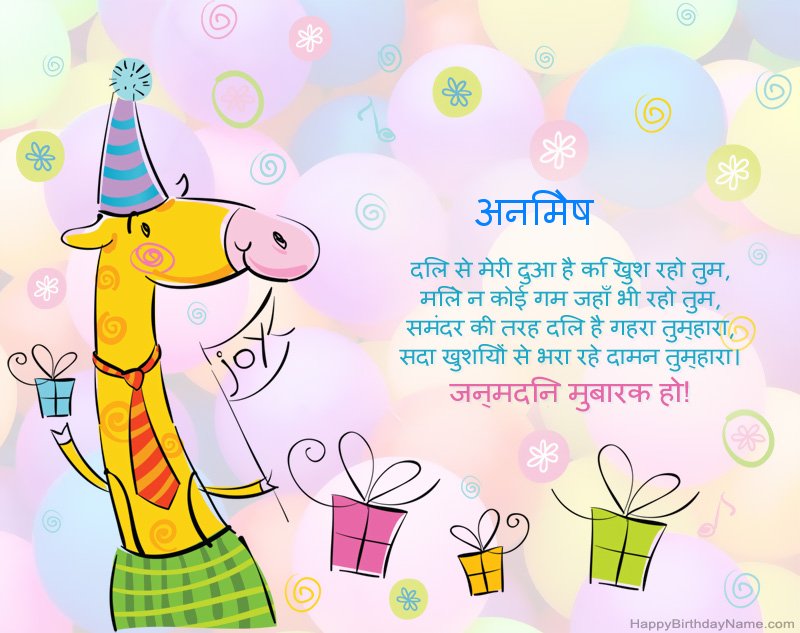 अनमिेष
joy
दलि से मेरी दुआ है क िखुश रहो तुम,
मलिे न कोई गम जहाँ भी रहो तुम,
समंदर की तरह दलि है गहरा तुम्हारा,
सदा खुशयिों से भरा रहे दामन तुम्हारा।
जन्मदनि मुबारक हो!
HappyBirthdayName.com